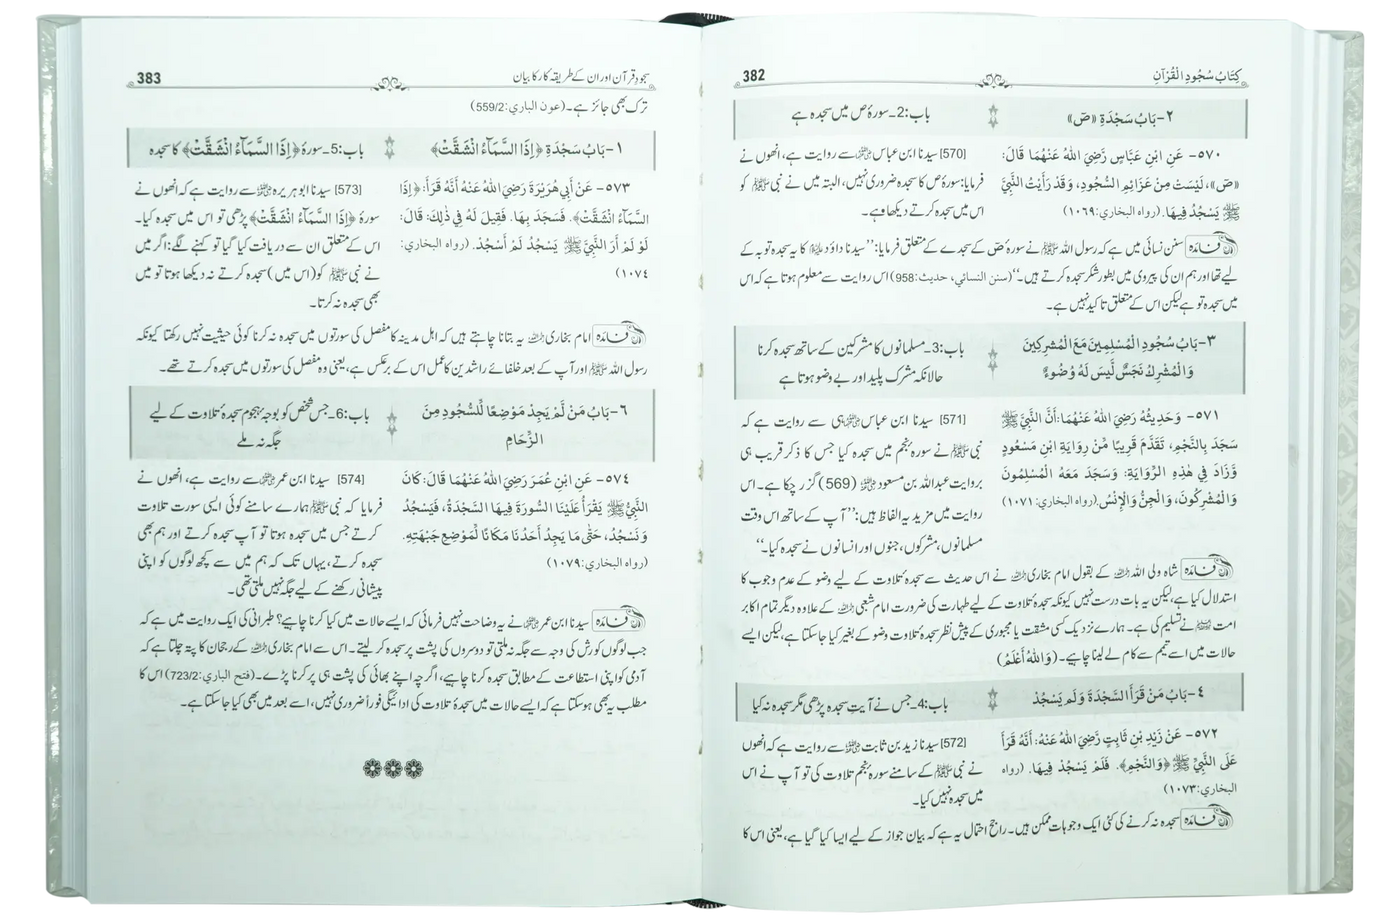 كِتَابُ سُجُودِ الْقُرْآنِ
382
٢- بَابُ سَجْدَةِ «صٓ»
باب:2۔سورۂ ص میں سجدہ ہے
٥٧٠- عَنِ ابْنِ عَبَّاسٍ رَّضِيَ اللهُ عَنْهُمَا قَالَ:
«صٓ»، لَيْسَتْ مِنْ عَزَائِمِ السُّجُودِ، وَقَدْ رَأَيْتُ النَّبِيَّ
ﷺ يَسْجُدُ فِيهَا. (رواه البخاري:١٠٦٩)
[570] سیدنا ابن عباس رضی اللہ عنہما سے روایت ہے، انھوں نے
فرمایا: سورۂ ص کا سجدہ ضروری نہیں، البتہ میں نے نبی ﷺ کو
اس میں سجدہ کرتے دیکھا ہے۔
فائدہ سنن نسائی میں ہے کہ رسول اللہ ﷺ نے سورۂ صٓ کے سجدے کے متعلق فرمایا: ’’سیدنا داؤد علیہ السلام کا یہ سجدہ توبہ کے
لیے تھا اور ہم ان کی پیروی میں بطور شکر سجدہ کرتے ہیں۔‘‘ (سنن النسائي، حديث:958) اس روایت سے معلوم ہوتا ہے کہ اس
میں سجدہ تو ہے لیکن اس کے متعلق تاکید نہیں ہے۔
٣- بَابُ سُجُودِ الْمُسْلِمِينَ مَعَ الْمُشْرِكِينَ
وَالْمُشْرِكُ نَجَسٌ لَّيْسَ لَهُ وُضُوءٌ
باب:3۔مسلمانوں کا مشرکین کے ساتھ سجدہ کرنا
حالانکہ مشرک پلید اور بے وضو ہوتا ہے
٥٧١- وَحَدِيثُهُ رَضِيَ اللهُ عَنْهُمَا: أَنَّ النَّبِيَّ ﷺ
سَجَدَ بِالنَّجْمِ، تَقَدَّمَ قَرِيبًا مِّنْ رِوَايَةِ ابْنِ مَسْعُودٍ
وَّزَادَ فِي هٰذِهِ الرِّوَايَةِ: وَسَجَدَ مَعَهُ الْمُسْلِمُونَ
وَالْمُشْرِكُونَ، وَالْجِنُّ وَالْإِنْسُ. (رواه البخاري:١٠٧١)
[571] سیدنا ابن عباس رضی اللہ عنہما ہی سے روایت ہے کہ
نبی ﷺ نے سورۂ نجم میں سجدہ کیا جس کا ذکر قریب ہی
بروایت عبداللہ بن مسعود رضی اللہ عنہ (569) گزر چکا ہے۔ اس
روایت میں مزید یہ الفاظ ہیں: ’’آپ کے ساتھ اس وقت
مسلمانوں، مشرکوں، جنوں اور انسانوں نے سجدہ کیا۔‘‘
فائدہ شاہ ولی اللہ رحمہ اللہ کے بقول امام بخاری رحمہ اللہ نے اس حدیث سے سجدۂ تلاوت کے لیے وضو کے عدم وجوب کا
استدلال کیا ہے، لیکن یہ بات درست نہیں کیونکہ سجدۂ تلاوت کے لیے طہارت کی ضرورت امام شعبی رحمہ اللہ کے علاوہ دیگر تمام اکابر
امت نے تسلیم کی ہے۔ ہمارے نزدیک کسی مشقت یا مجبوری کے پیش نظر سجدۂ تلاوت وضو کے بغیر کیا جا سکتا ہے، لیکن ایسے
حالات میں اسے تیمم سے کام لے لینا چاہیے۔ (وَاللهُ أَعْلَمُ)
٤- بَابُ مَنْ قَرَأَ السَّجْدَةَ وَلَمْ يَسْجُدْ
باب:4۔جس نے آیت سجدہ پڑھی مگر سجدہ نہ کیا
٥٧٢- عَنْ زَيْدِ بْنِ ثَابِتٍ رَّضِيَ اللهُ عَنْهُ: أَنَّهُ قَرَأَ
عَلَى النَّبِيِّ ﷺ ﴿وَالنَّجْمِ﴾. فَلَمْ يَسْجُدْ فِيهَا. (رواه
البخاري:١٠٧٣)
[572] سیدنا زید بن ثابت رضی اللہ عنہ سے روایت ہے کہ انھوں
نے نبی ﷺ کے سامنے سورۂ نجم تلاوت کی تو آپ نے اس
میں سجدہ نہیں کیا۔
فائدہ سجدہ نہ کرنے کی کئی ایک وجوہات ممکن ہیں۔ راجح احتمال یہ ہے کہ بیان جواز کے لیے ایسا کیا گیا ہے، یعنی اس کا
سجود قرآن اور ان کے طریقہ کار کا بیان
383
ترک بھی جائز ہے۔ (عون الباري:559/2)
١- بَابُ سَجْدَةِ ﴿إِذَا السَّمَآءُ انْشَقَّتْ﴾
باب:5۔سورۂ ﴿إِذَا السَّمَآءُ انْشَقَّتْ﴾ کا سجدہ
٥٧٣- عَنْ أَبِي هُرَيْرَةَ رَضِيَ اللهُ عَنْهُ أَنَّهُ قَرَأَ: ﴿إِذَا
السَّمَآءُ انْشَقَّتْ﴾. فَسَجَدَ بِهَا. فَقِيلَ لَهُ فِي ذٰلِكَ: قَالَ:
لَوْ لَمْ أَرَ النَّبِيَّ ﷺ يَسْجُدُ لَمْ أَسْجُدْ. (رواه البخاري:
١٠٧٤)
[573] سیدنا ابو ہریرہ رضی اللہ عنہ سے روایت ہے کہ انھوں نے
سورۂ ﴿إِذَا السَّمَآءُ انْشَقَّتْ﴾ پڑھی تو اس میں سجدہ کیا۔
اس کے متعلق ان سے دریافت کیا گیا تو کہنے لگے: اگر میں
نے نبی ﷺ کو (اس میں) سجدہ کرتے نہ دیکھا ہوتا تو میں
بھی سجدہ نہ کرتا۔
فائدہ امام بخاری رحمہ اللہ یہ بتانا چاہتے ہیں کہ اہل مدینہ کا مفصل کی سورتوں میں سجدہ نہ کرنا کوئی حیثیت نہیں رکھتا کیونکہ
رسول اللہ ﷺ اور آپ کے بعد خلفائے راشدین کا عمل اس کے برعکس ہے، یعنی وہ مفصل کی سورتوں میں سجدہ کرتے تھے۔
٦- بَابُ مَنْ لَّمْ يَجِدْ مَوْضِعًا لِّلسُّجُودِ مِنَ
الزِّحَامِ
باب:6۔جس شخص کو بوجہ ہجوم سجدۂ تلاوت کے لیے
جگہ نہ ملے
٥٧٤- عَنِ ابْنِ عُمَرَ رَضِيَ اللهُ عَنْهُمَا قَالَ: كَانَ
النَّبِيُّ ﷺ يَقْرَأُ عَلَيْنَا السُّورَةَ فِيهَا السَّجْدَةُ، فَيَسْجُدُ
وَنَسْجُدُ، حَتّٰى مَا يَجِدُ أَحَدُنَا مَكَانًا لِّمَوْضِعِ جَبْهَتِهِ.
(رواه البخاري:١٠٧٩)
[574] سیدنا ابن عمر رضی اللہ عنہما سے روایت ہے، انھوں نے
فرمایا کہ نبی ﷺ ہمارے سامنے کوئی ایسی سورت تلاوت
کرتے جس میں سجدہ ہوتا تو آپ سجدہ کرتے اور ہم بھی
سجدہ کرتے، یہاں تک کہ ہم میں سے کچھ لوگوں کو اپنی
پیشانی رکھنے کے لیے جگہ نہیں ملتی تھی۔
فائدہ سیدنا ابن عمر رضی اللہ عنہما نے یہ وضاحت نہیں فرمائی کہ ایسے حالات میں کیا کرنا چاہیے؟ طبرانی کی ایک روایت میں ہے کہ
جب لوگوں کو رش کی وجہ سے جگہ نہ ملتی تو دوسروں کی پشت پر سجدہ کر لیتے۔ اس سے امام بخاری رحمہ اللہ کے رجحان کا پتہ چلتا ہے کہ
آدمی کو اپنی استطاعت کے مطابق سجدہ کرنا چاہیے، اگرچہ اپنے بھائی کی پشت ہی پر کرنا پڑے۔ (فتح الباري:723/2) اس کا
مطلب یہ بھی ہو سکتا ہے کہ ایسے حالات میں سجدۂ تلاوت کی ادائیگی فوراً ضروری نہیں، اسے بعد میں بھی کیا جا سکتا ہے۔